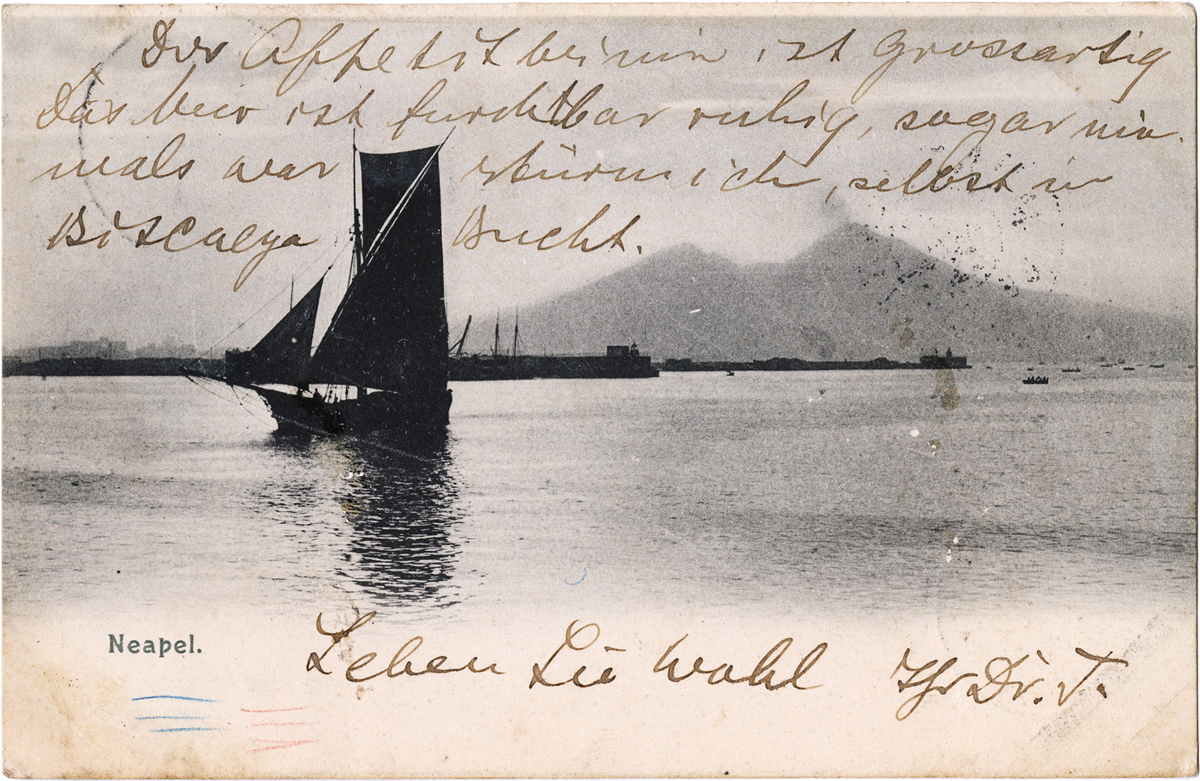 Der Appetit bei mir ist Grossartig
Das Meer ist furchtbar ruhig, sogar nie
mals war stürmich, selbst in
Biscaeya Bucht.
Neapel.
Leben Sie wohl Ihr Dr. T.